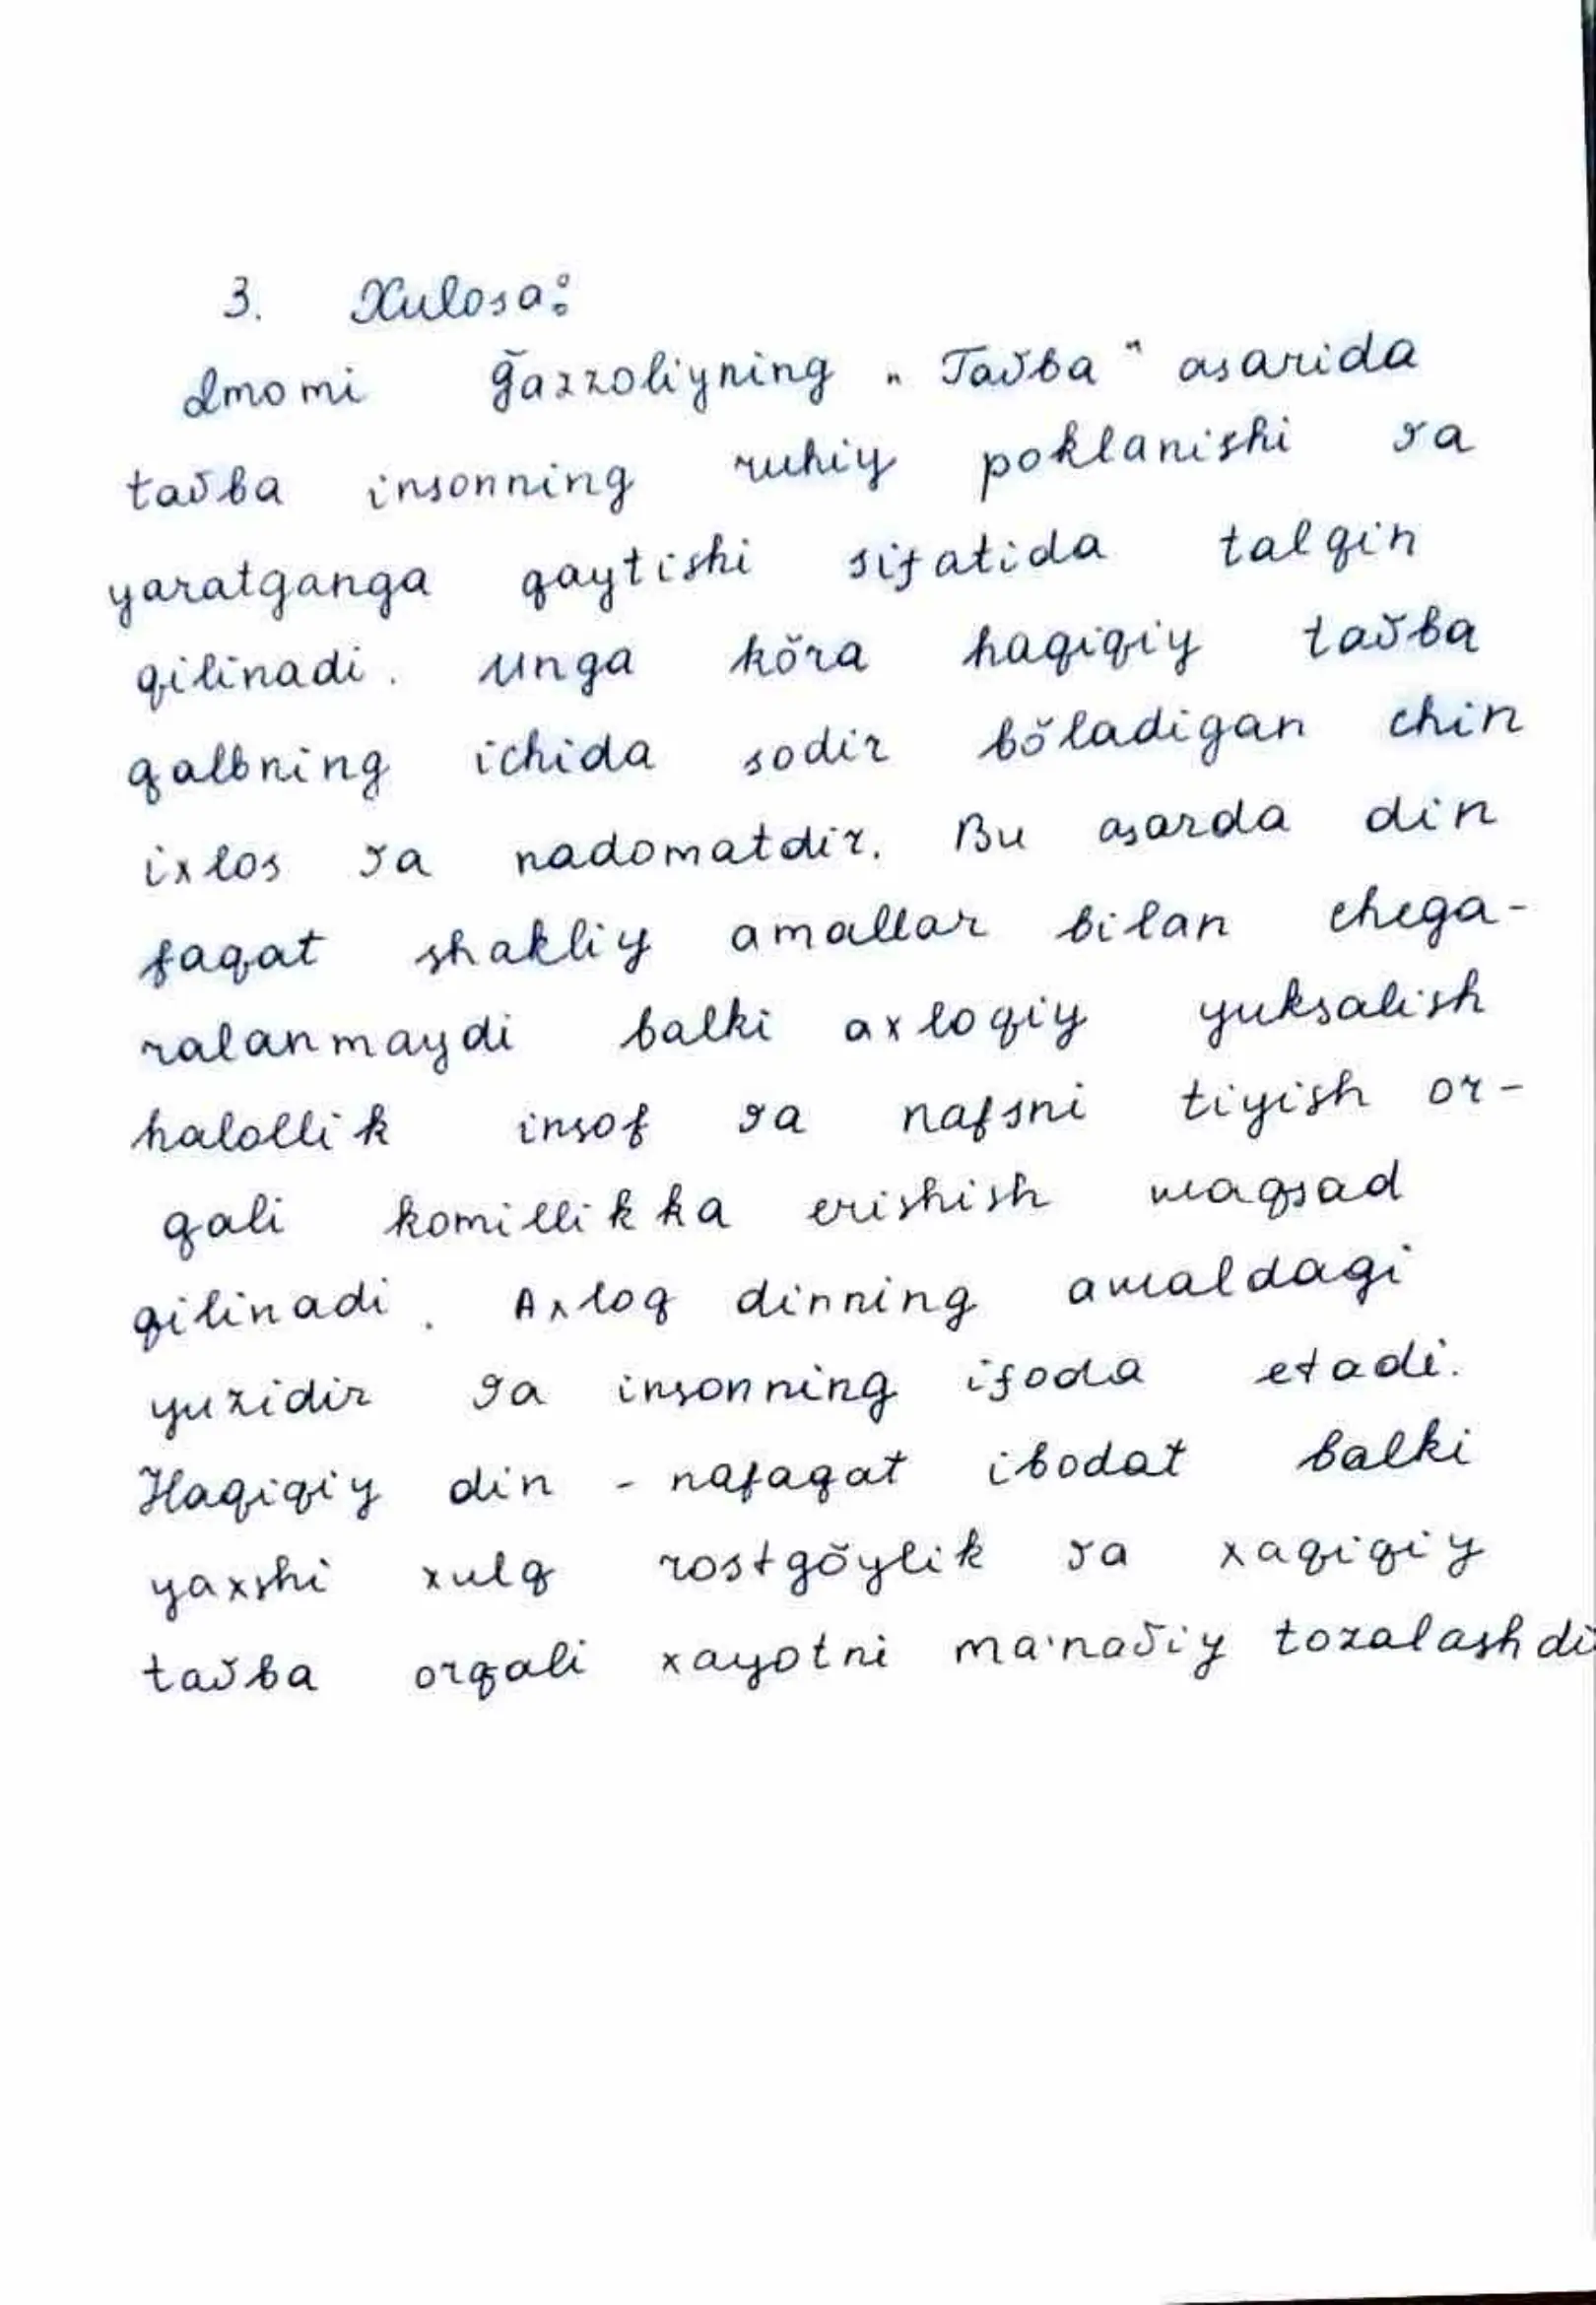 3. Xulosa:
Imomi Ğazzoliyning „Tavba" asarida
tavba insonning ruhiy poklanishi va
yaratganga qaytishi sifatida talqin
qilinadi. Unga kŏra haqiqiy tavba
qalbning ichida sodir bŏladigan chin
ixlos va nadomatdir. Bu asarda din
faqat shakliy amallar bilan chega-
ralanmaydi balki axloqiy yuksalish
halollik insof va nafsni tiyish or-
qali komillikka erishish maqsad
qilinadi. Axloq dinning amaldagi
yuzidir va insonning ifoda etadi.
Haqiqiy din - nafaqat ibodat balki
yaxshi xulq rostgŏylik va xaqiqiy
tavba orqali xayotni ma'naviy tozalashdi